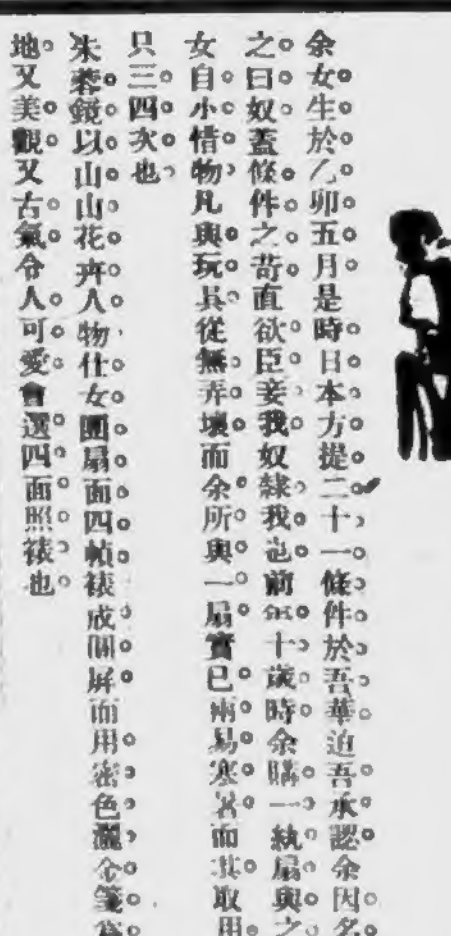 余女生於乙卯五月是時日本方提二十一條件於吾華迫吾承認余因名
之曰奴蓋條件之苛直欲臣妾我奴隸我也前年十歲時余購一紈扇與之
女自小惜物凡與玩具從無弄壞而余所與一扇實已兩易寒暑而其取用
只三四次也
朱蓉鏡以山山花卉人物仕女團扇面四幀裱成圍屏而用密色灑金箋為
地又美觀又古氣令人可愛會選四面照裱也